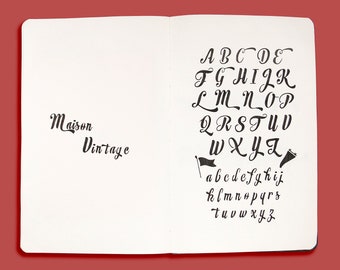 Maison
Vintage
A B C D E
F G H I J K
L M N O P
Q R S T U V
W X Y Z
a b c d e f g h i j
k l m n o p q r s
t u v w x y z